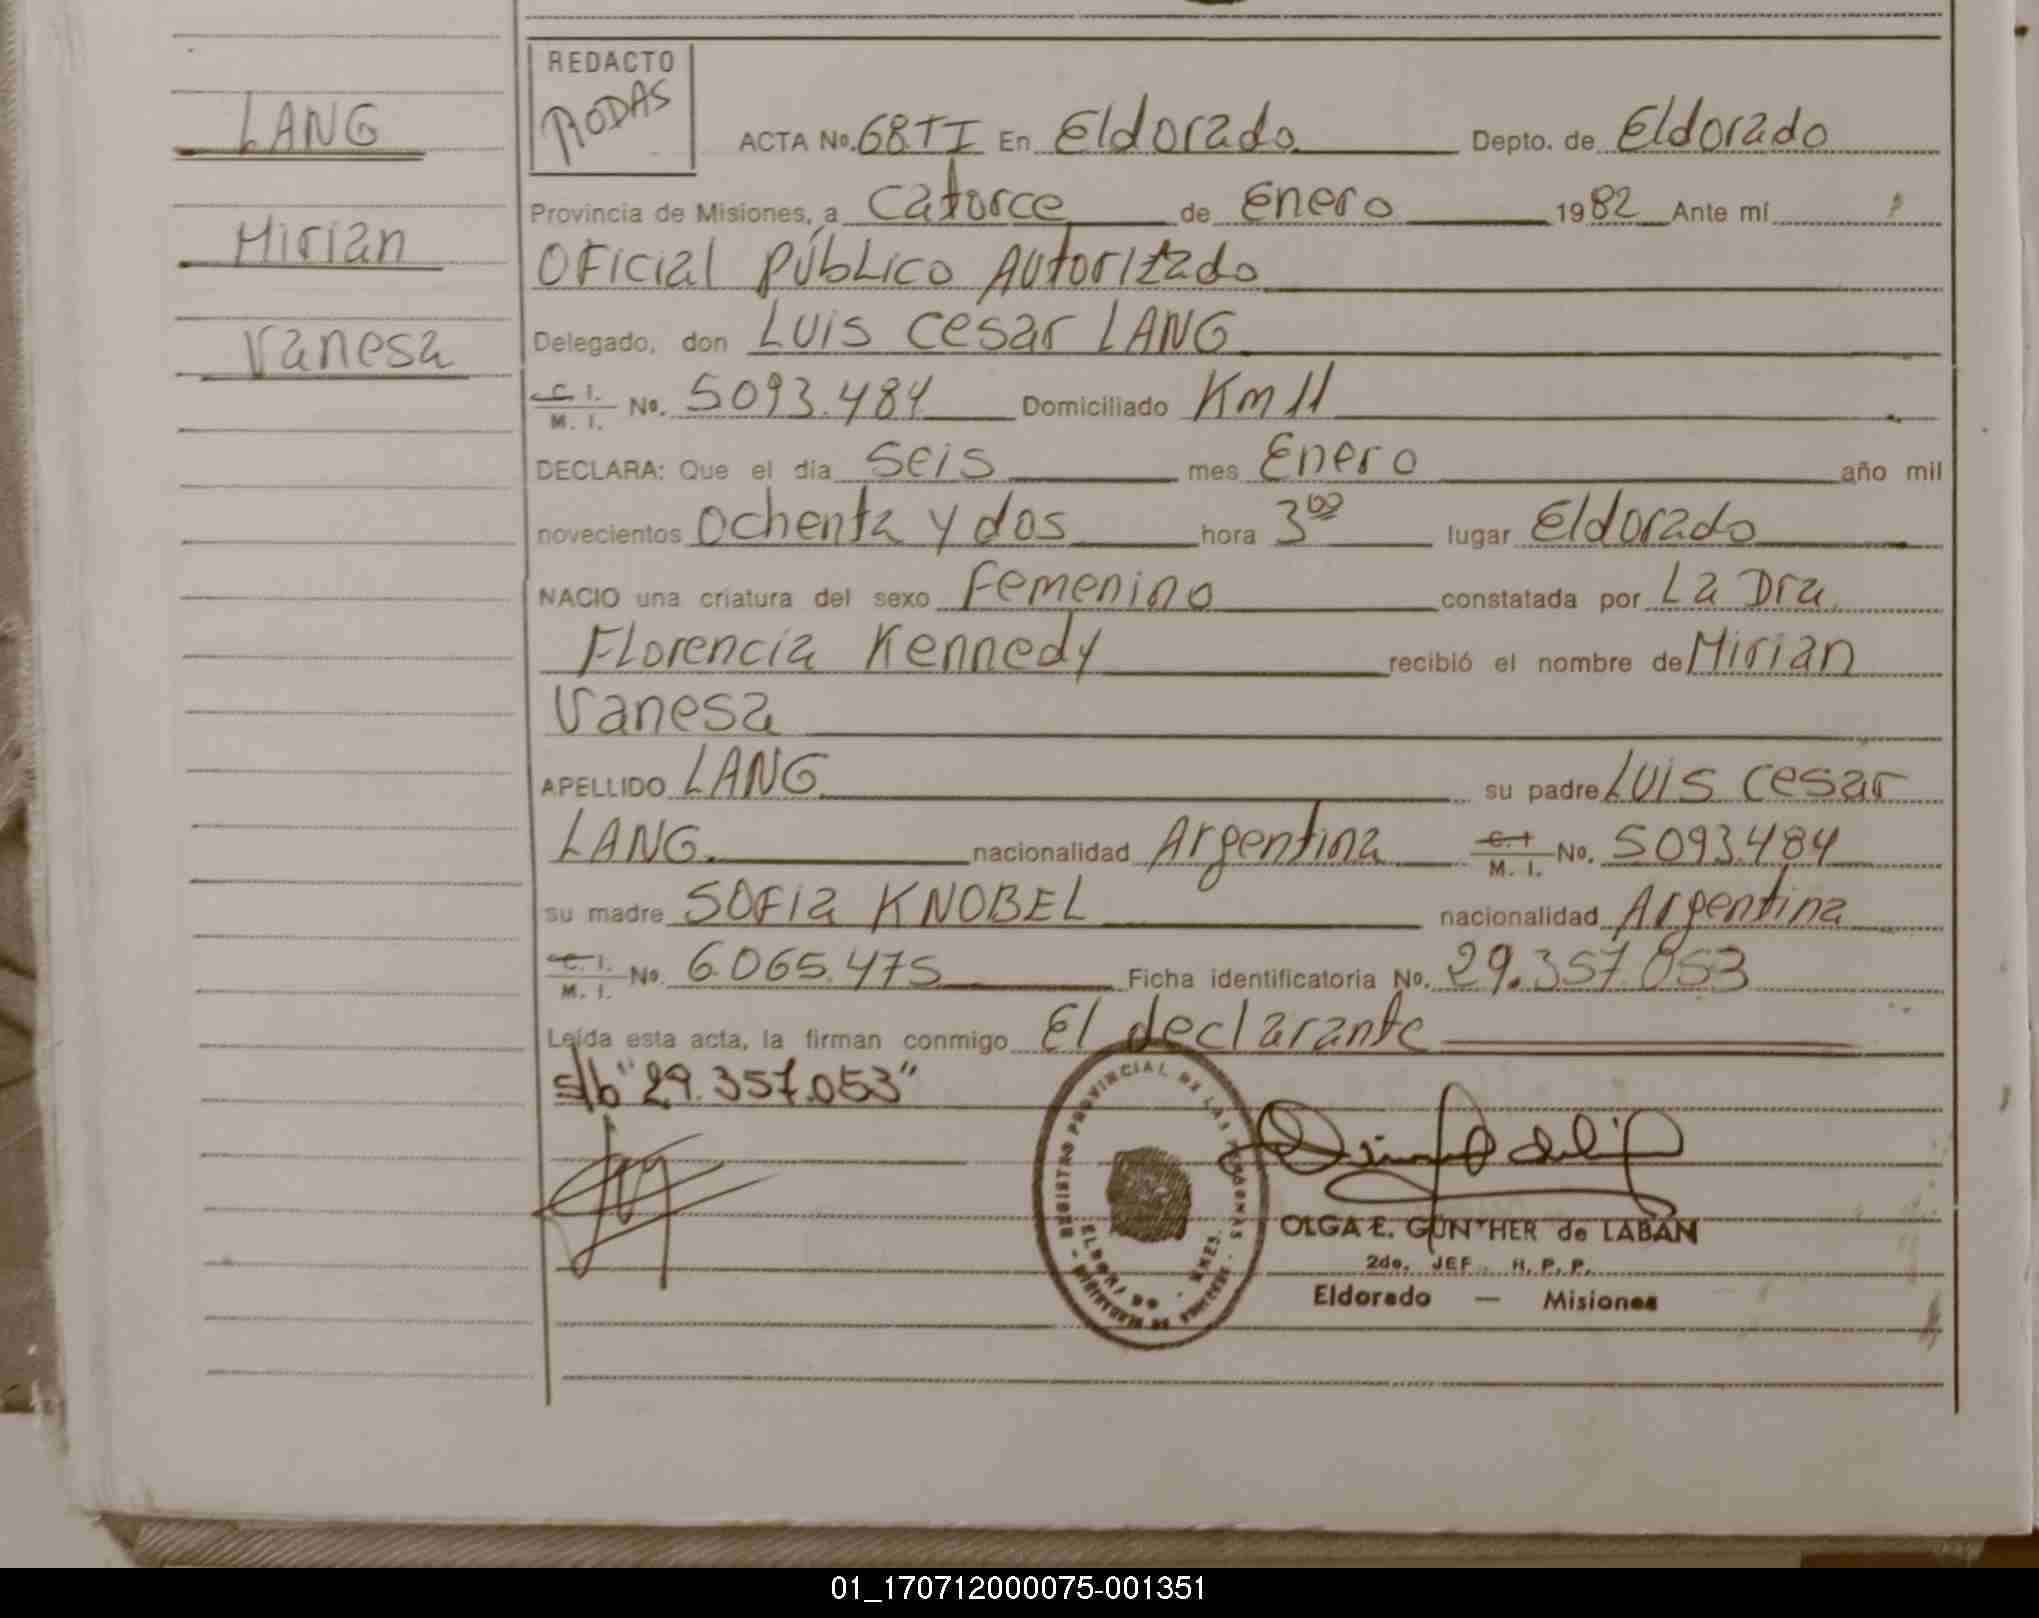 LANG
Mirian
Vanesa
REDACTO
RODAS
ACTA No. 68TI En Eldorado Depto. de Eldorado
Provincia de Misiones, a catorce de Enero 1982 Ante mí
Oficial Público Autorizado
Delegado, don Luis Cesar LANG
C. I.
M. I. No. 5093.484 Domiciliado Km 11
DECLARA: Que el día seis mes Enero año mil
novecientos ochenta y dos hora 3⁰⁰ lugar Eldorado
NACIO una criatura del sexo Femenino constatada por La Dra.
Florencia Kennedy recibió el nombre de Mirian
Vanesa
APELLIDO LANG su padre Luis Cesar
LANG. nacionalidad Argentina C. I.
M. I. No. 5093.484
su madre SOFIa KNOBEL nacionalidad Argentina
C. I.
M. I. No. 6.065.475 Ficha identificatoria No. 29.357.053
Leída esta acta, la firman conmigo El declarante
s/b "29.357.053"
REGISTRO PROVINCIAL DE LAS PERSONAS
ELDORADO MNES.
OLGA E. GUNTHER de LABAN
2do. JEF. R. P. P.
Eldorado — Misiones
01_170712000075-001351